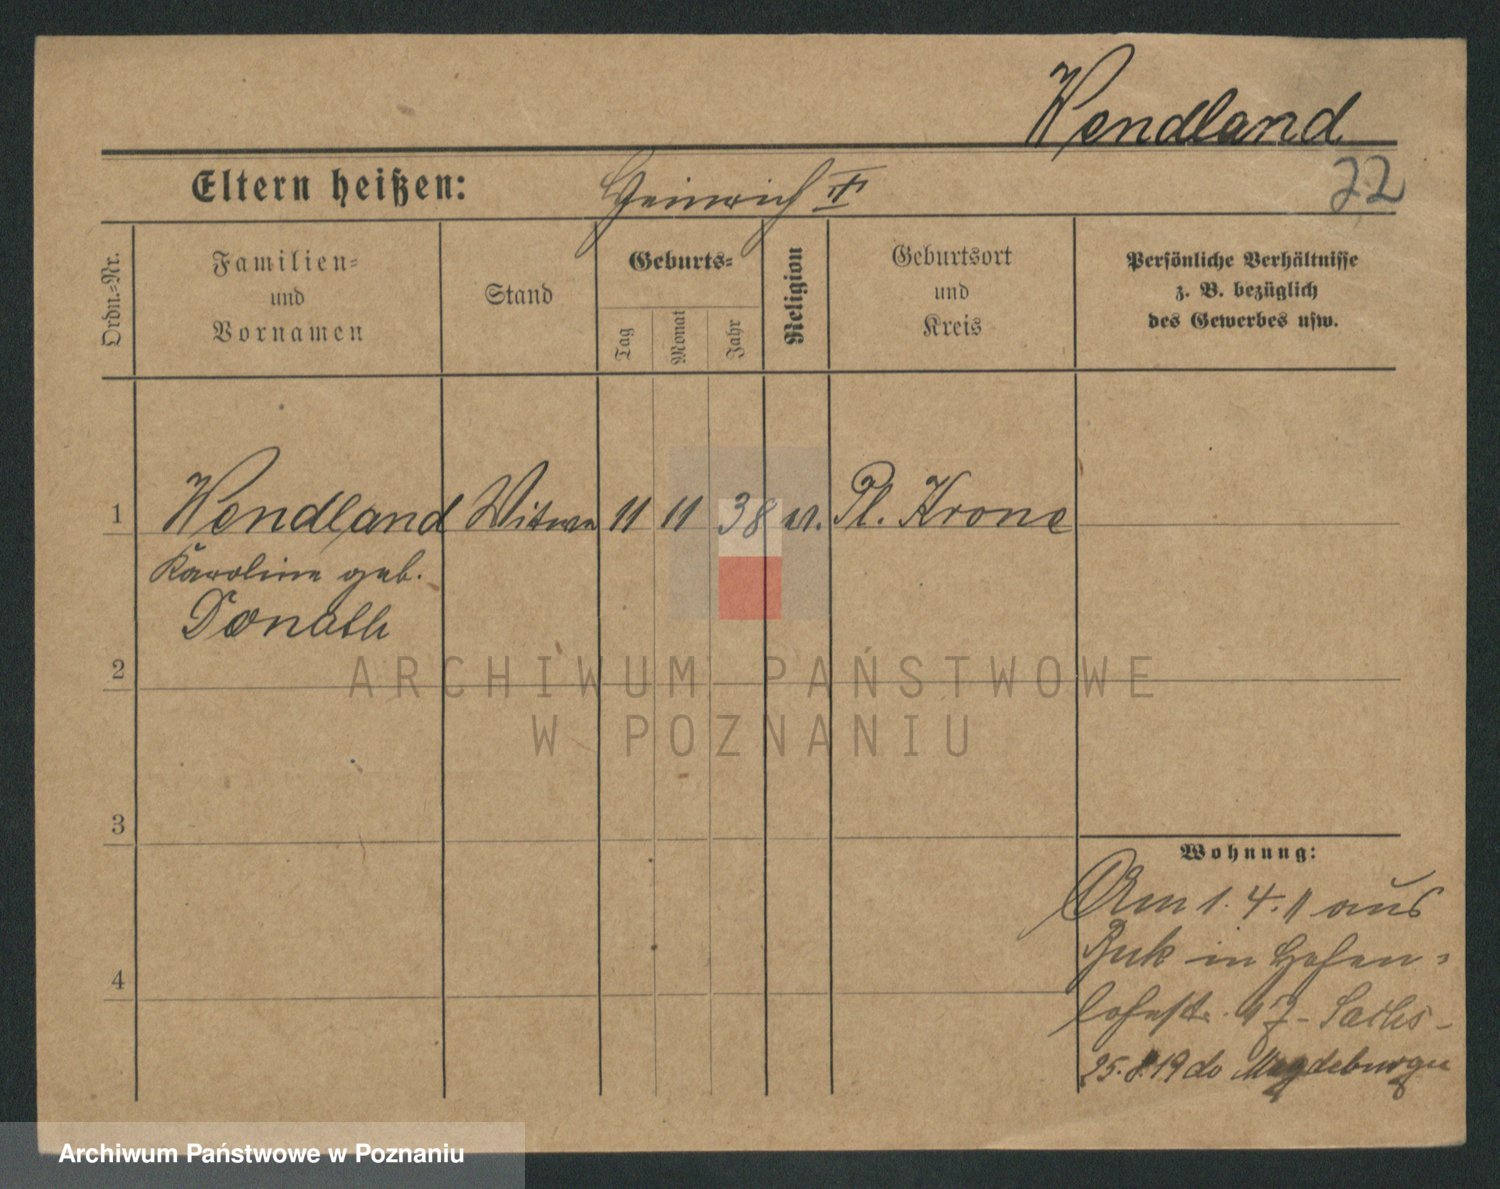 Wendland
22
Eltern heißen: Heinrich ✝
Ordn.-Nr.
Familien-
und
Vornamen
Stand
Geburts-
Tag
Monat
Jahr
Religion
Geburtsort
und
Kreis
Persönliche Verhältnisse
z. B. bezüglich
des Gewerbes usw.
1 Wendland Witwe 11 11 38 ev. Pl. Krone
Karoline geb.
Donath
2
3
4
Wohnung:
Am 1. 4. 11 aus
Buk in Hohen-
lohestr. 17 - Sachs -
25. 8. 19 do Magdeburg
ARCHIWUM PAŃSTWOWE
W POZNANIU
Archiwum Państwowe w Poznaniu